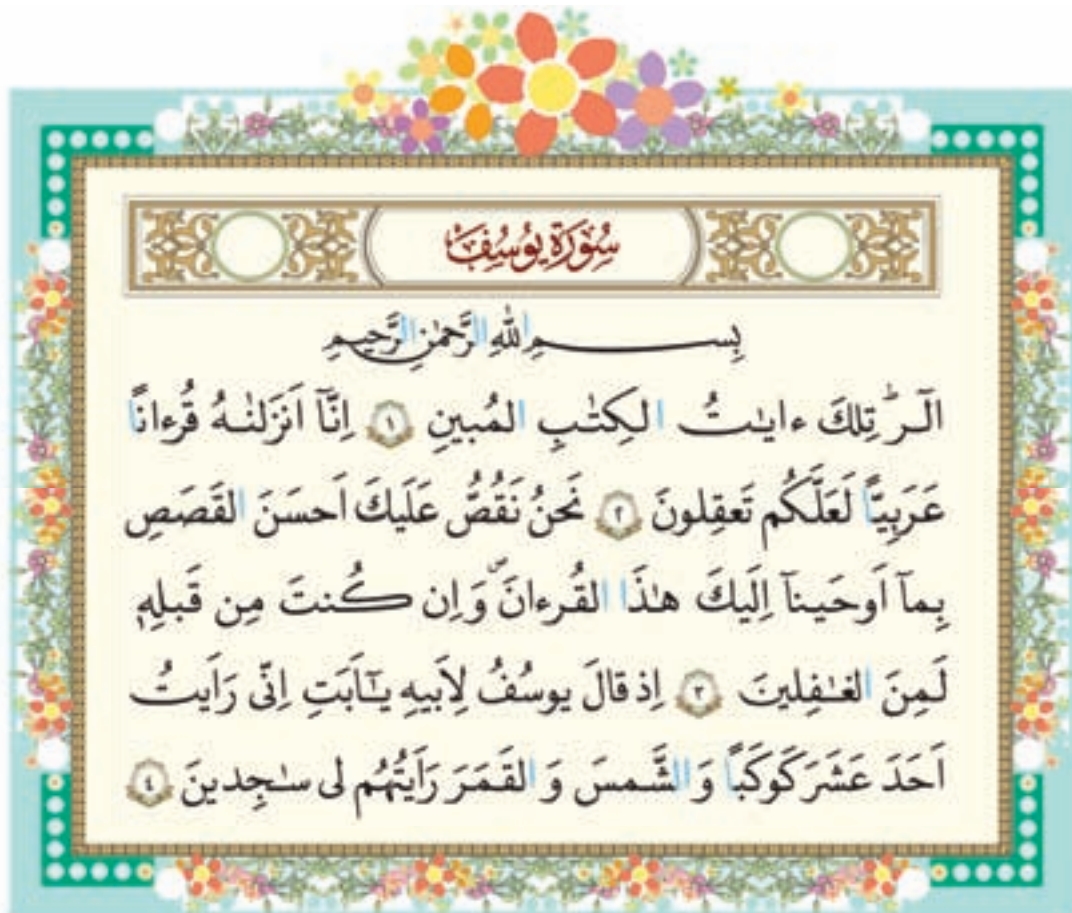 سُورَة يُوسُفَ
بِسمِ اللّٰهِ الرَّحمٰنِ الرَّحيمِ
الٓرٰ ۚ تِلكَ ءايٰتُ الكِتٰبِ المُبينِ ۝١ اِنّآ اَنزَلنٰهُ قُرءانًا
عَرَبِيًّا لَعَلَّكُم تَعقِلونَ ۝٢ نَحنُ نَقُصُّ عَلَيكَ اَحسَنَ القَصَصِ
بِمآ اَوحَينآ اِلَيكَ هٰذَا القُرءانَ وَ اِن كُنتَ مِن قَبلِهٖ
لَمِنَ الغٰفِلينَ ۝٣ اِذ قالَ يوسُفُ لِاَبيهِ يٰٓاَبَتِ اِنّى رَاَيتُ
اَحَدَ عَشَرَ كَوكَبًا وَ الشَّمسَ وَ القَمَرَ رَاَيتُهُم لى سٰجِدينَ ۝٤